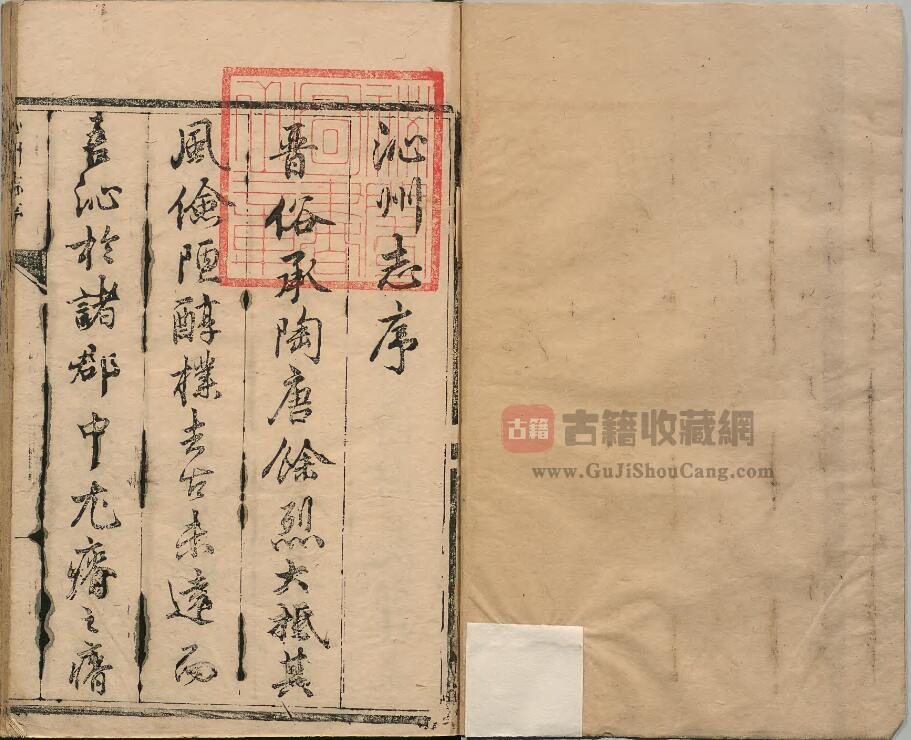 沁州志序
晋俗承陶唐餘烈大抵其
風儉陋醇樸去古未遠而
吾沁於諸郡中尤瘠之瘠
古籍
古籍收藏網
www.GuJiShouCang.com